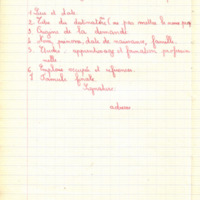 1. Lieu et date
2. Titre du destinataire (ne pas mettre le nom propre
3. Origine de la demande
4. Nom, prénoms, date de naissance, famille
5. Etudes : apprentissage et formation profession
nelle
6. Emplois occupés et références
7. Formule finale
Signature
adresse